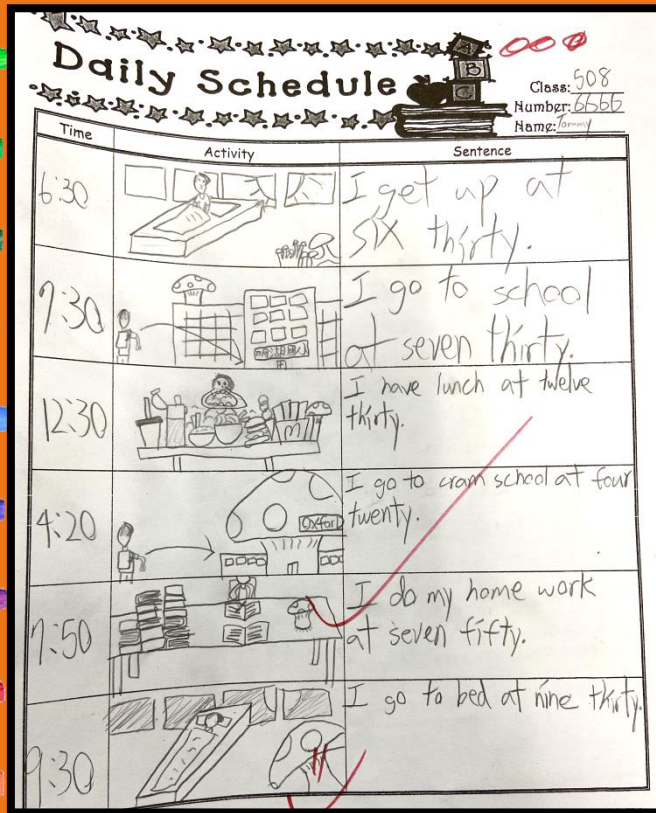 Daily Schedule
A
B
C
Class: 508
Number: 6666
Name: Tommy
Time
Activity
Sentence
6:30
I get up at
six thirty.
7:30
I go to school
at seven thirty.
12:30
I have lunch at twelve
thirty.
M
4:20
I go to cram school at four
twenty.
Oxford
7:50
I do my home work
at seven fifty.
9:30
I go to bed at nine thirty.